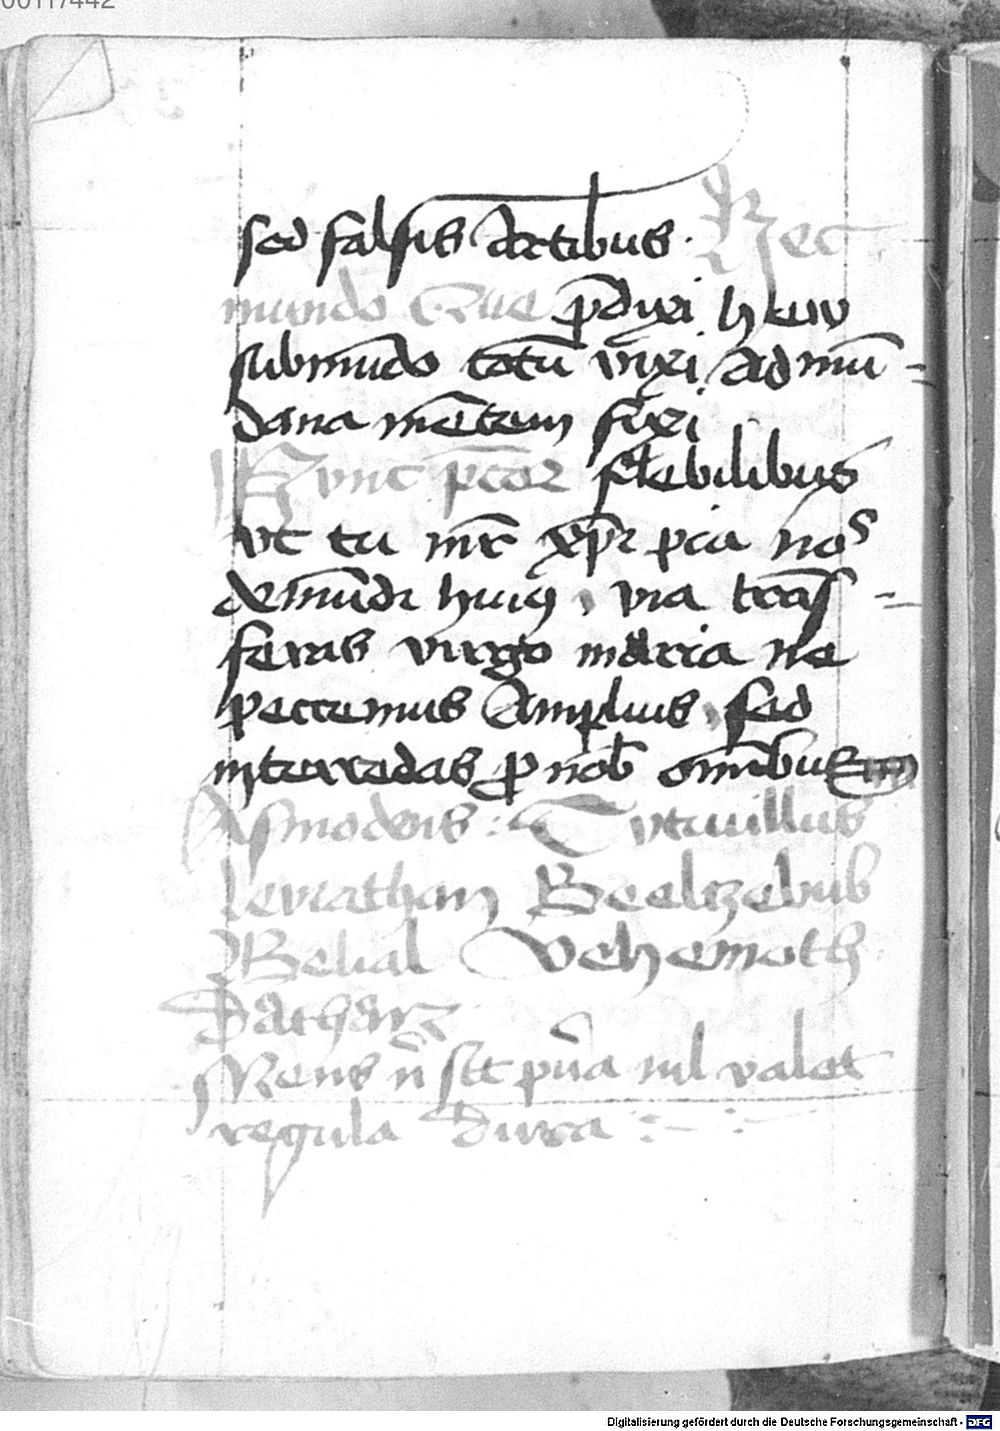 00117442
sed falsis Artibus. Nec
mundo Que p̄dixi heu
submūdo totū vixi Ad mū =
dana mētem fixi
Nunc pc̄cor flebilibus
vt tu mr̄ xp̄i pia nos
de mūdi huiꝯ via trās =
feras virgo maria ne
peccemus Amplius sed
intercedas ꝓ nob̄ om̄ibus
Asmodeus : Tutuillus
leviathan Beelczebub
Belial Vehemoth
Sathan
Mens n̄ sit pura nil valet
regula dura :- :-
Digitalisierung gefördert durch die Deutsche Forschungsgemeinschaft - DFG